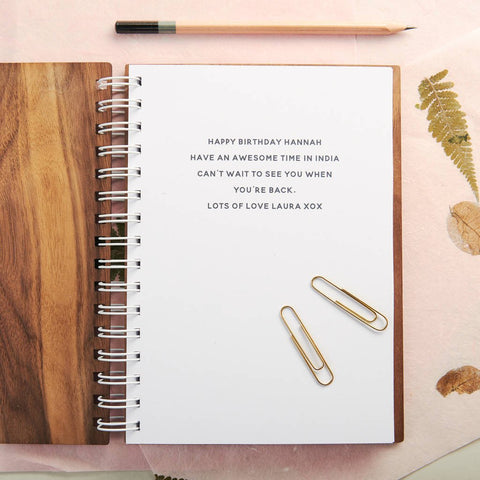 HAPPY BIRTHDAY HANNAH
HAVE AN AWESOME TIME IN INDIA
CAN'T WAIT TO SEE YOU WHEN
YOU'RE BACK.
LOTS OF LOVE LAURA XOX